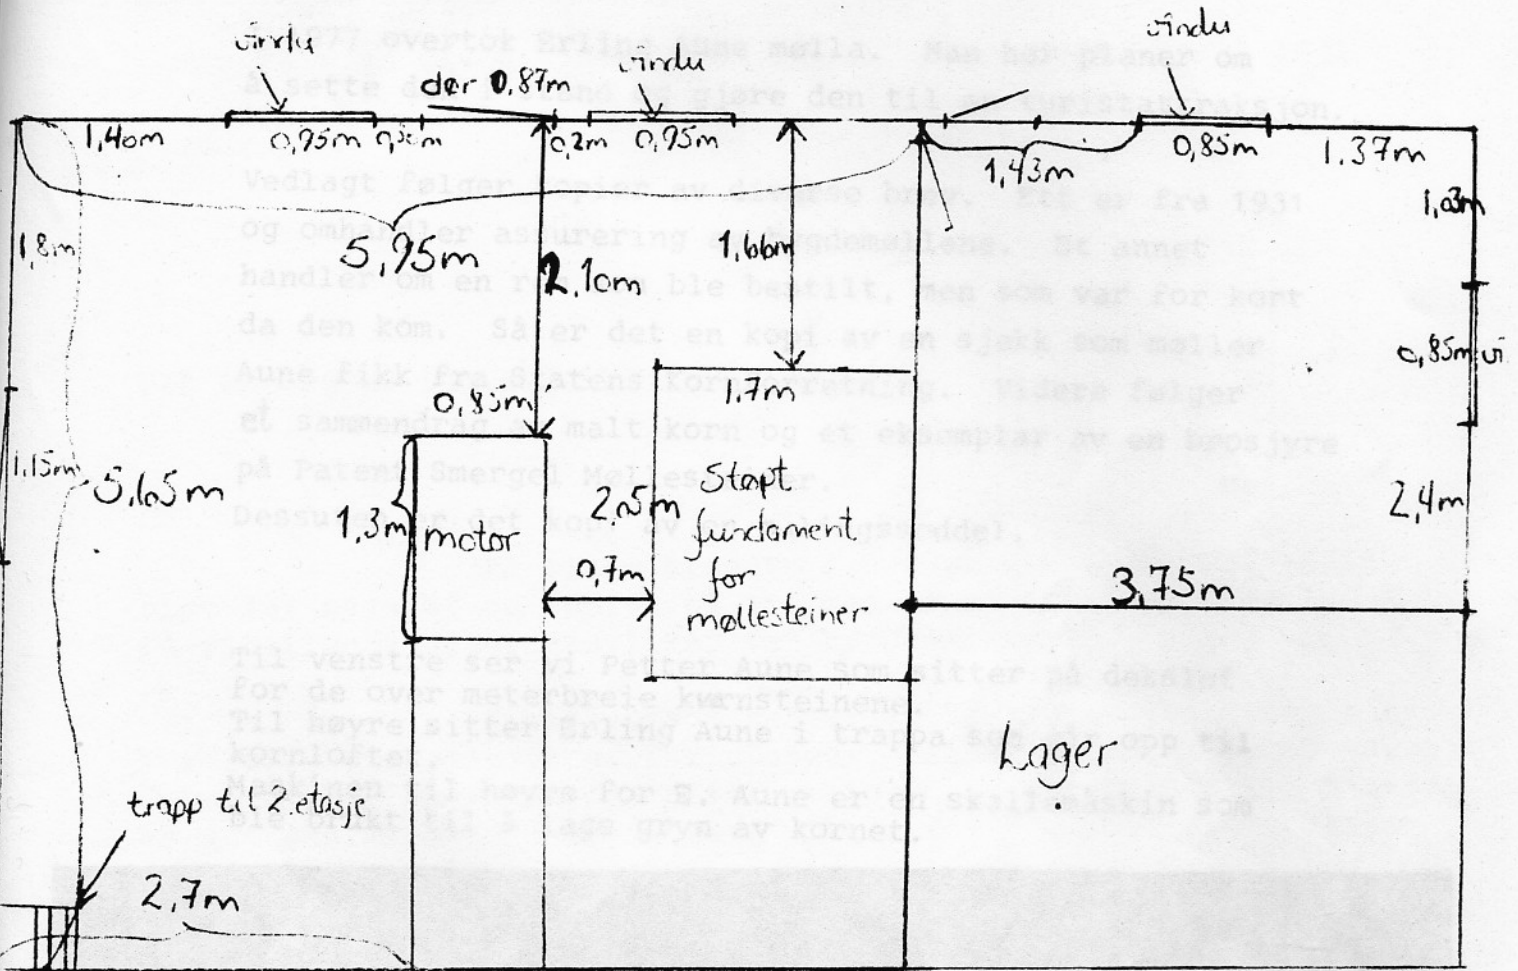 vindu
vindu
vindu
dør 0,87m
1,40m
0,95m
0,2m
0,95m
1,43m
0,85m
1.37m
1,8m
5,95m
2,10m
1,66m
1,03m
0,85m
1,7m
0,85m
1,15m
5,65m
1,3m
motor
2,5m
Støpt
fundament
for
møllesteiner
0,7m
2,4m
3,75m
Lager
trapp til 2 etasje
2,7m
1977 overtok Erling Aune mølla. Han har planer om
å sette den i stand og gjøre den til en turistattraksjon.
Vedlagt følger kopier av diverse brev. Ett er fra 1931
og omhandler assurering av bygdemøllene. Et annet
handler om en rem som ble bestilt, men som var for kort
da den kom. Så er det en kopi av en sjekk som møller
Aune fikk fra Statens Kornforretning. Videre følger
et sammendrag av malt korn og et eksemplar av en brosjyre
på Patent Smergel Møllesteiner.
Dessuten er det kopi av en
Til venstre ser vi Petter Aune som sitter på dekslet
for de over meterbreie kvernsteinene.
Til høyre sitter Erling Aune i trappa som går opp til
kornloftet.
Maskinen til høyre for E. Aune er en skallemaskin som
ble brukt til å lage gryn av kornet.